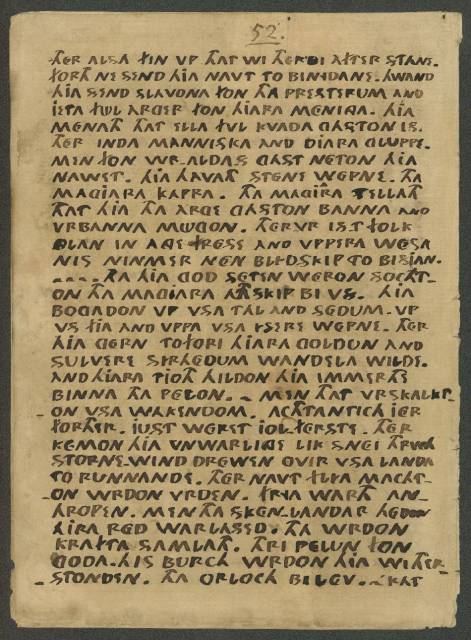 52.
THÉR ALSA FIN VP THAT WI THÉRBI AFTER STANE.
FORTH NE SEND HIA NAVT TO BINIDANE. HWAND
HIA SEND SLAVONA FON THA PRESTERUM AND
IETA FUL ARGER FON HIARA MENINGA. HIA
MENATH THAT ELLA FUL KVADA GASTON IS.
THER INDA MANNISKA AND DIARA GLUPPE.
MEN FON WR.ALDAS GAST NETON HIA
NAWET. HIA HAVATH STENE WEPNE. THA
MAGIARA KAPRA. THA MAGIRA TELLATH
THAT HIA THA ARGE GASTON BANNA AND
VRBANNA MUGON. THERVR IS.T FOLK
OLAN IN AGE FRESE AND VPPERA WESA
NIS NIMMER NEN BLIDSKIP TO BISIAN.
---- THA HIA GOD SETEN WERON SOCHT-
ON THA MAGIARA ATHSKIP BI VS. HIA
BOGADON VP VSA TAL AND SEDUM. VP
VS FIA AND VPPA VSA YSERE WEPNE. THER
HIA GERN TOFORI HIARA GOLDUN AND
SULVERE SYRHEDUM WANDELA WILDE.
AND HIARA TIOTH HILDON HIA IMMERTHE
BINNA THA PELON. - MEN THAT VRSKALKT-
ON VSA WAKENDOM. ACHTANTICH IER
FORTHER. IUST WERET IOL.FERSTE. THER
KEMON HIA VNWARLINGE LIK SNEI THRVCH
STORNE-WIND DREWEN OVIR VSA LANDA
TO RUNNANDE. THER NAVT FLYA MACHT-
ON WRDON VRDEN. FRYA WARTH AN-
HROPEN. MEN THA SKEN.LANDAR HEDON
HIRA RED WARLASED. THA WRDON
KRAFTA SAMLATH. THRI PELUN FON
GODA.HIS BURCH WRDON HIA WITHER-
STONDEN. THA ORLOCH BILEV. -KAT